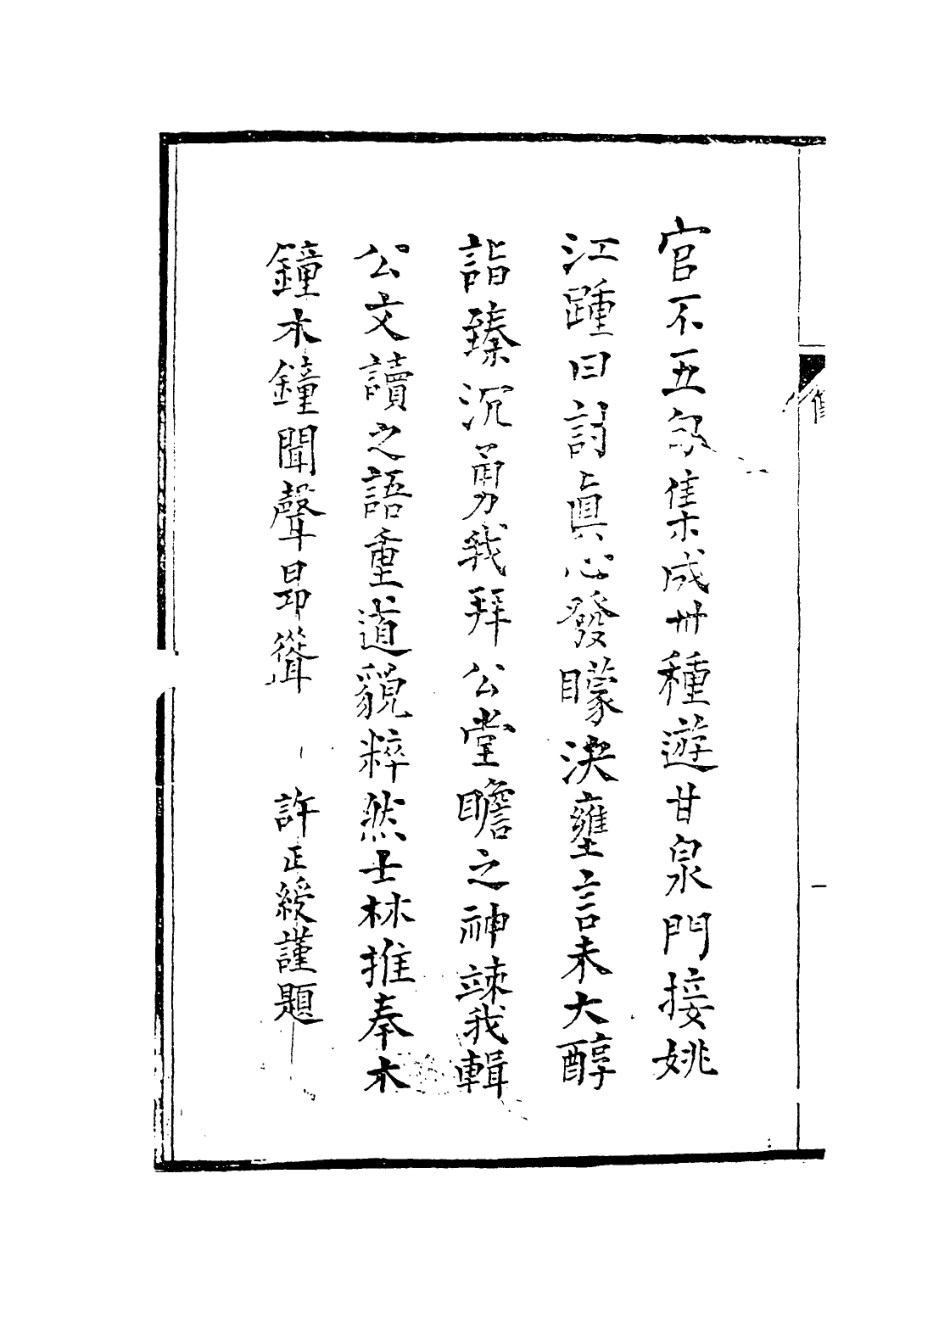 官不五命集成卅種遊甘泉門接姚
江踵曰討眞心發矇決壅言未大醇
詣臻沉勇我拜公堂瞻之神竦我輯
公文讀之語重道貌粹然士林推奉木
鐘木鐘聞聲昂聳　許正綬謹題